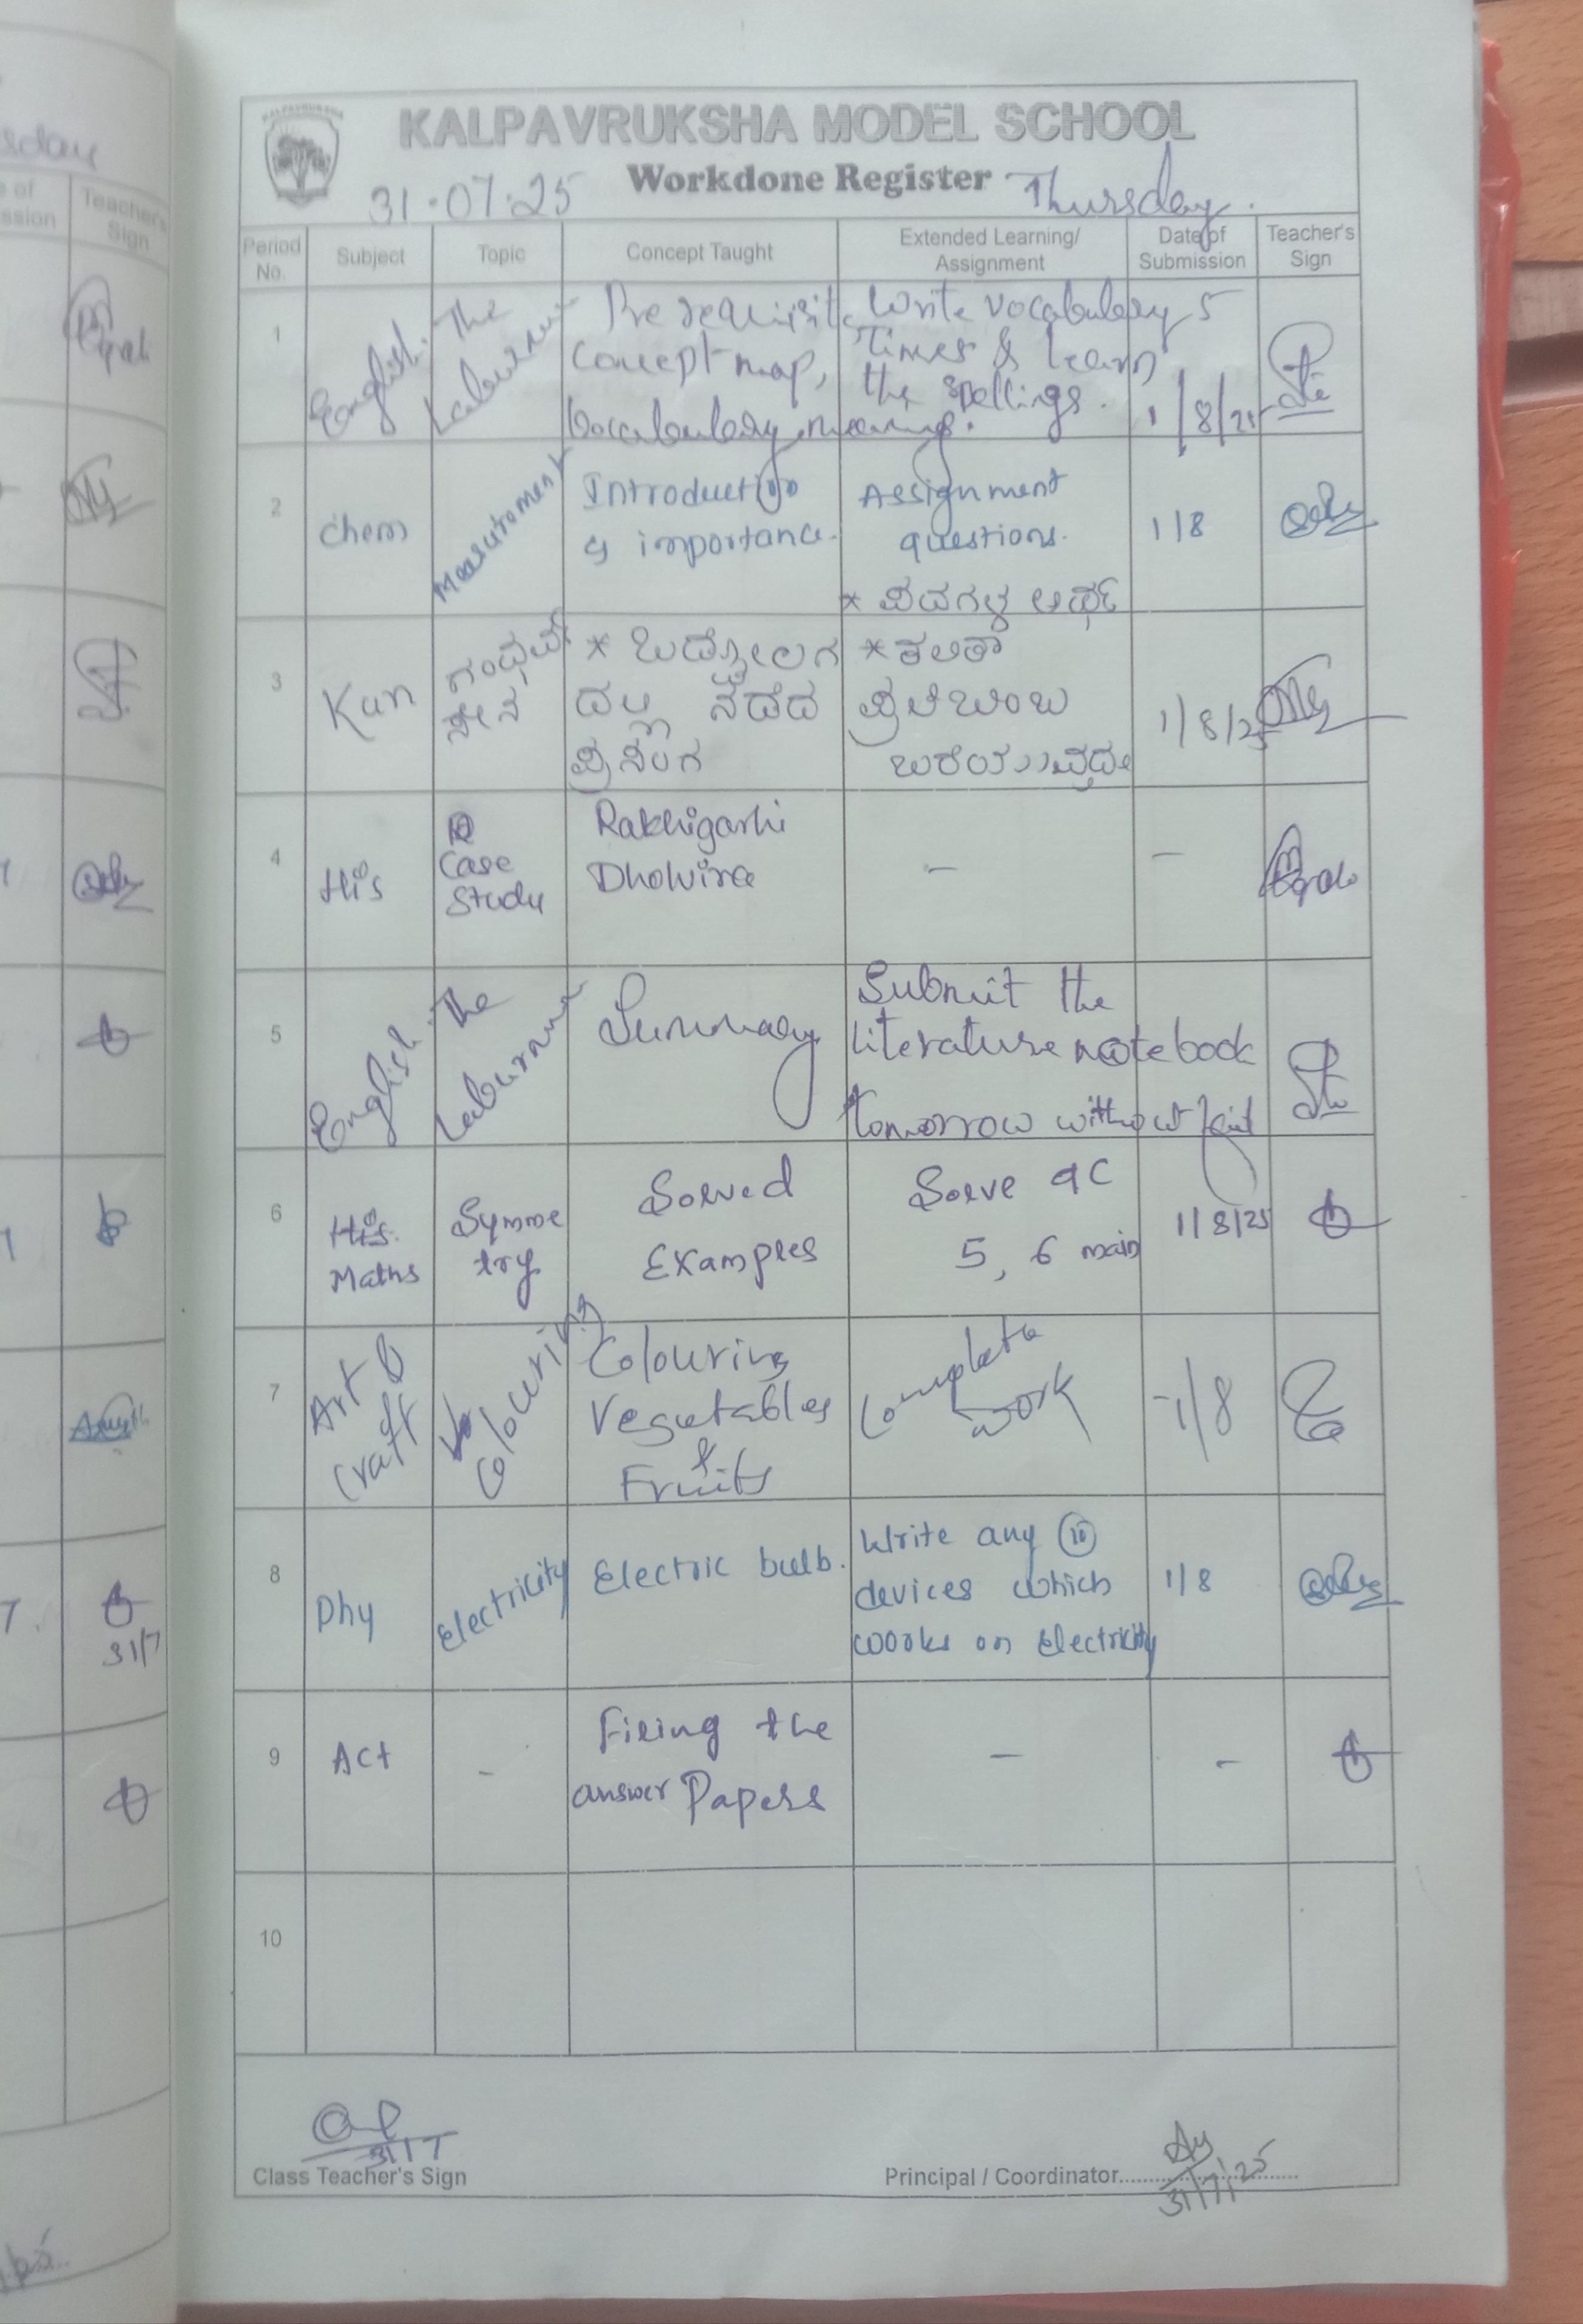 KALPAVRUKSHA MODEL SCHOOL
31.07.25 Workdone Register Thursday.
Period No. Subject Topic Concept Taught Extended Learning/ Assignment Date of Submission Teacher's Sign
1 English. The Laburnum
Pre requisite
concept map,
Vocabulary, meanings.
Write vocabulary 5
Times & learn
the spellings.
1/8/25
2 Chem Measurement
Introduction
& importance.
Assignment
questions.
1/8
3 Kan ಗಂಧರ್ವ
ಸೇನ
* ಒಡ್ಡೋಲಗ
ದಲ್ಲಿ ನಡೆದ
ಪ್ರಸಂಗ
* ಪದಗಳ ಅರ್ಥ
* ಕಲಿಕಾ
ಪ್ರತಿಬಿಂಬ
ಬರೆಯುವುದು
1/8/25
4 His
Case
Study
Rakhigarhi
Dholvira
-
-
5 English The Laburnum
Summary
Submit the
literature notebook
tomorrow without fail
6 His.
Maths
Symme
try
Solved
Examples
Solve 9C
5, 6 main
1/8/25
7 Art &
Craft
Colouring
Colouring
Vegetables
&
Fruits
Complete
work
1/8
8 Phy Electricity Electric bulb.
Write any 10
devices which
works on Electricity
1/8
9 Act -
Filing the
answer Papers
- -
10
31/7
Class Teacher's Sign
Principal / Coordinator
31/7/25
Teacher's
Sign
31/7